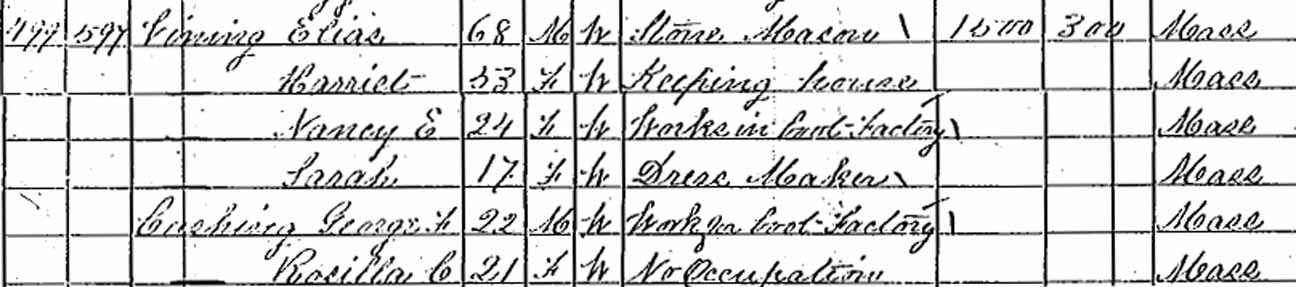 499 597 Vining Elias 68 M W Stone Mason \ 1500 300 Mass
Harriet 53 F W Keeping house Mass
Nancy E 24 F W Works in Boot Factory \ Mass
Sarah 17 F W Dress Maker \ Mass
Cushing George F 22 M W Work in Boot Factory \ Mass
Rosilla C 21 F W No Occupation Mass